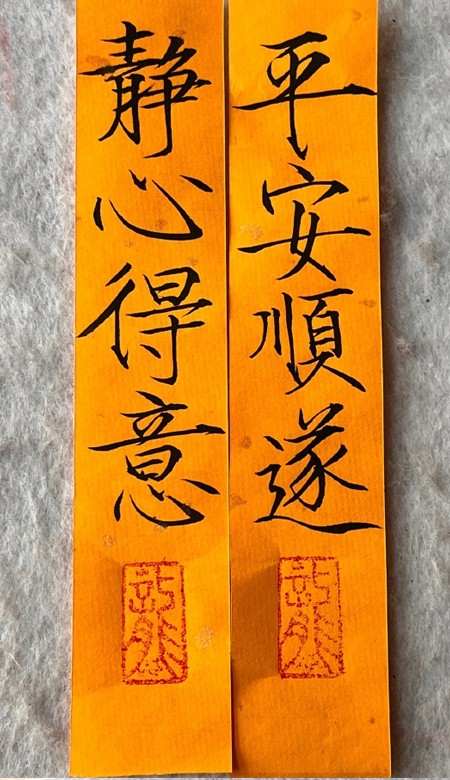 平安順遂
静心得意